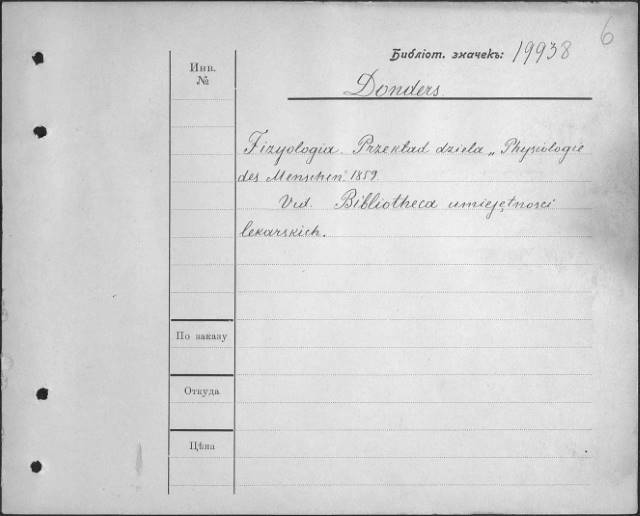 6
Библіот. значекъ: 19938
Инв.
№
Donders
Fizyologia. Przekład dzieła „Physiologie
des Menschen". 1859
Vid. Bibliotheca umiejętności
lekarskich.
По заказу
Откуда
Цѣна